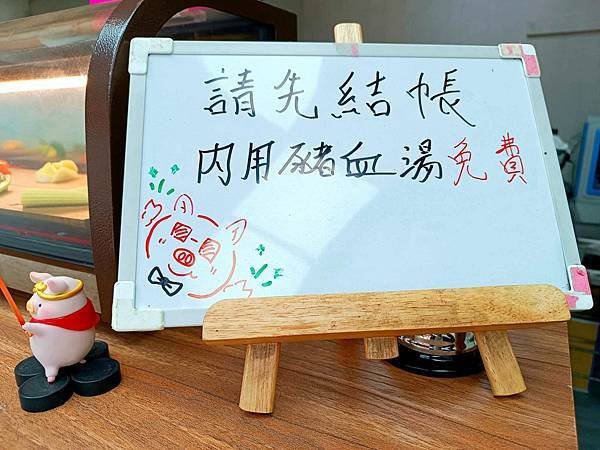 請先結帳
内用豬血湯免費